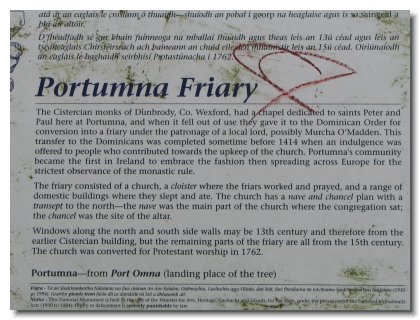 atá ar an eaglais le croslann ó thuaidh—shuíodh an pobal i georp na heaglaise agus is sa saingeal a
bhí an altóir.
D'fhéadfadh sé gur bhain fuinneoga na mballaí thuaidh agus theas leis an 13ú céad agus leis an
leis an 15ú céad. Oiriúnaíodh
an eaglais le haghaidh seirbhísí Protastúnacha i 1762.
Portumna Friary
The Cistercian monks of Dunbrody, Co. Wexford, had a chapel dedicated to saints Peter and
Paul here at Portumna, and when it fell out of use they gave it to the Dominican Order for
conversion into a friary under the patronage of a local lord, possibly Murcha O'Madden. This
transfer to the Dominicans was completed sometime before 1414 when an indulgence was
offered to people who contributed towards the upkeep of the church. Portumna's community
became the first in Ireland to embrace the fashion then spreading across Europe for the
strictest observance of the monastic rule.
The friary consisted of a church, a cloister where the friars worked and prayed, and a range of
domestic buildings where they slept and ate. The church has a nave and chancel plan with a
transept to the north—the nave was the main part of the church where the congregation sat;
the chancel was the site of the altar.
Windows along the north and south side walls may be 13th century and therefore from the
earlier Cistercian building, but the remaining parts of the friary are all from the 15th century.
The church was converted for Protestant worship in 1762.
Portumna—from Port Omna (landing place of the tree)
Notice - This National Monument is in the care of the Minister for Arts, Heritage, Gaeltacht and Islands, for the State, under the provisions of the National Monuments
Acts (1930 to 1994). Injury or defacement is severely punishable by law.